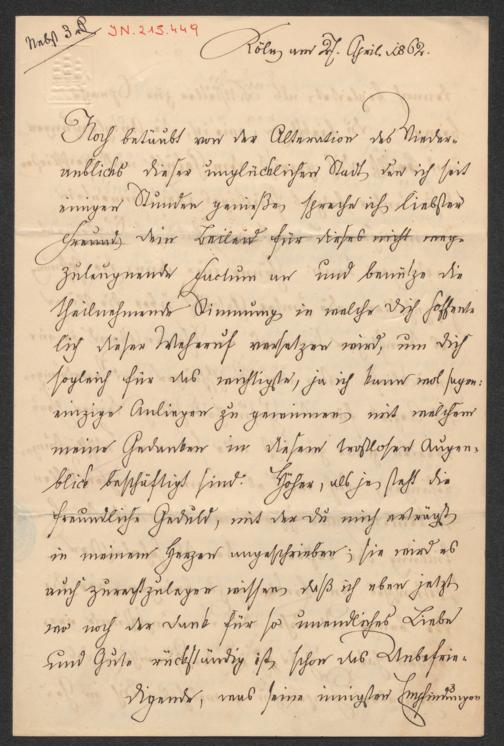 Nebst 3 B
IN. 213.449
Köln am 27. April 1862.
Noch betäubt von der Alteration des Wieder-
anblicks dieser unglücklichen Stadt, den ich seit
einigen Stunden genieße, spreche ich, liebster
Freund, dein Beileid für dieses nicht weg-
zuleugnende Factum an und benütze die
theilnehmende Stimmung, in welche dich hoffent-
lich dieser Weheruf versetzen wird, um dich
sogleich für das wichtigste, ja ich kann wol sagen:
einzige Anliegen zu gewinnen, mit welchem
meine Gedanken in diesem trostlosen Augen-
blick beschäftigt sind. Höher, als je, steht die
freundliche Geduld, mit der du mich erträgst,
in meinem Herzen angeschrieben; sie wird es
auch zurechtzulegen wissen, daß ich eben jetzt,
wo noch der Dank für so unendliches Liebe
und Gute rückständig ist, schon das Unbefrie-
digende, was seine innigsten Empfindungen